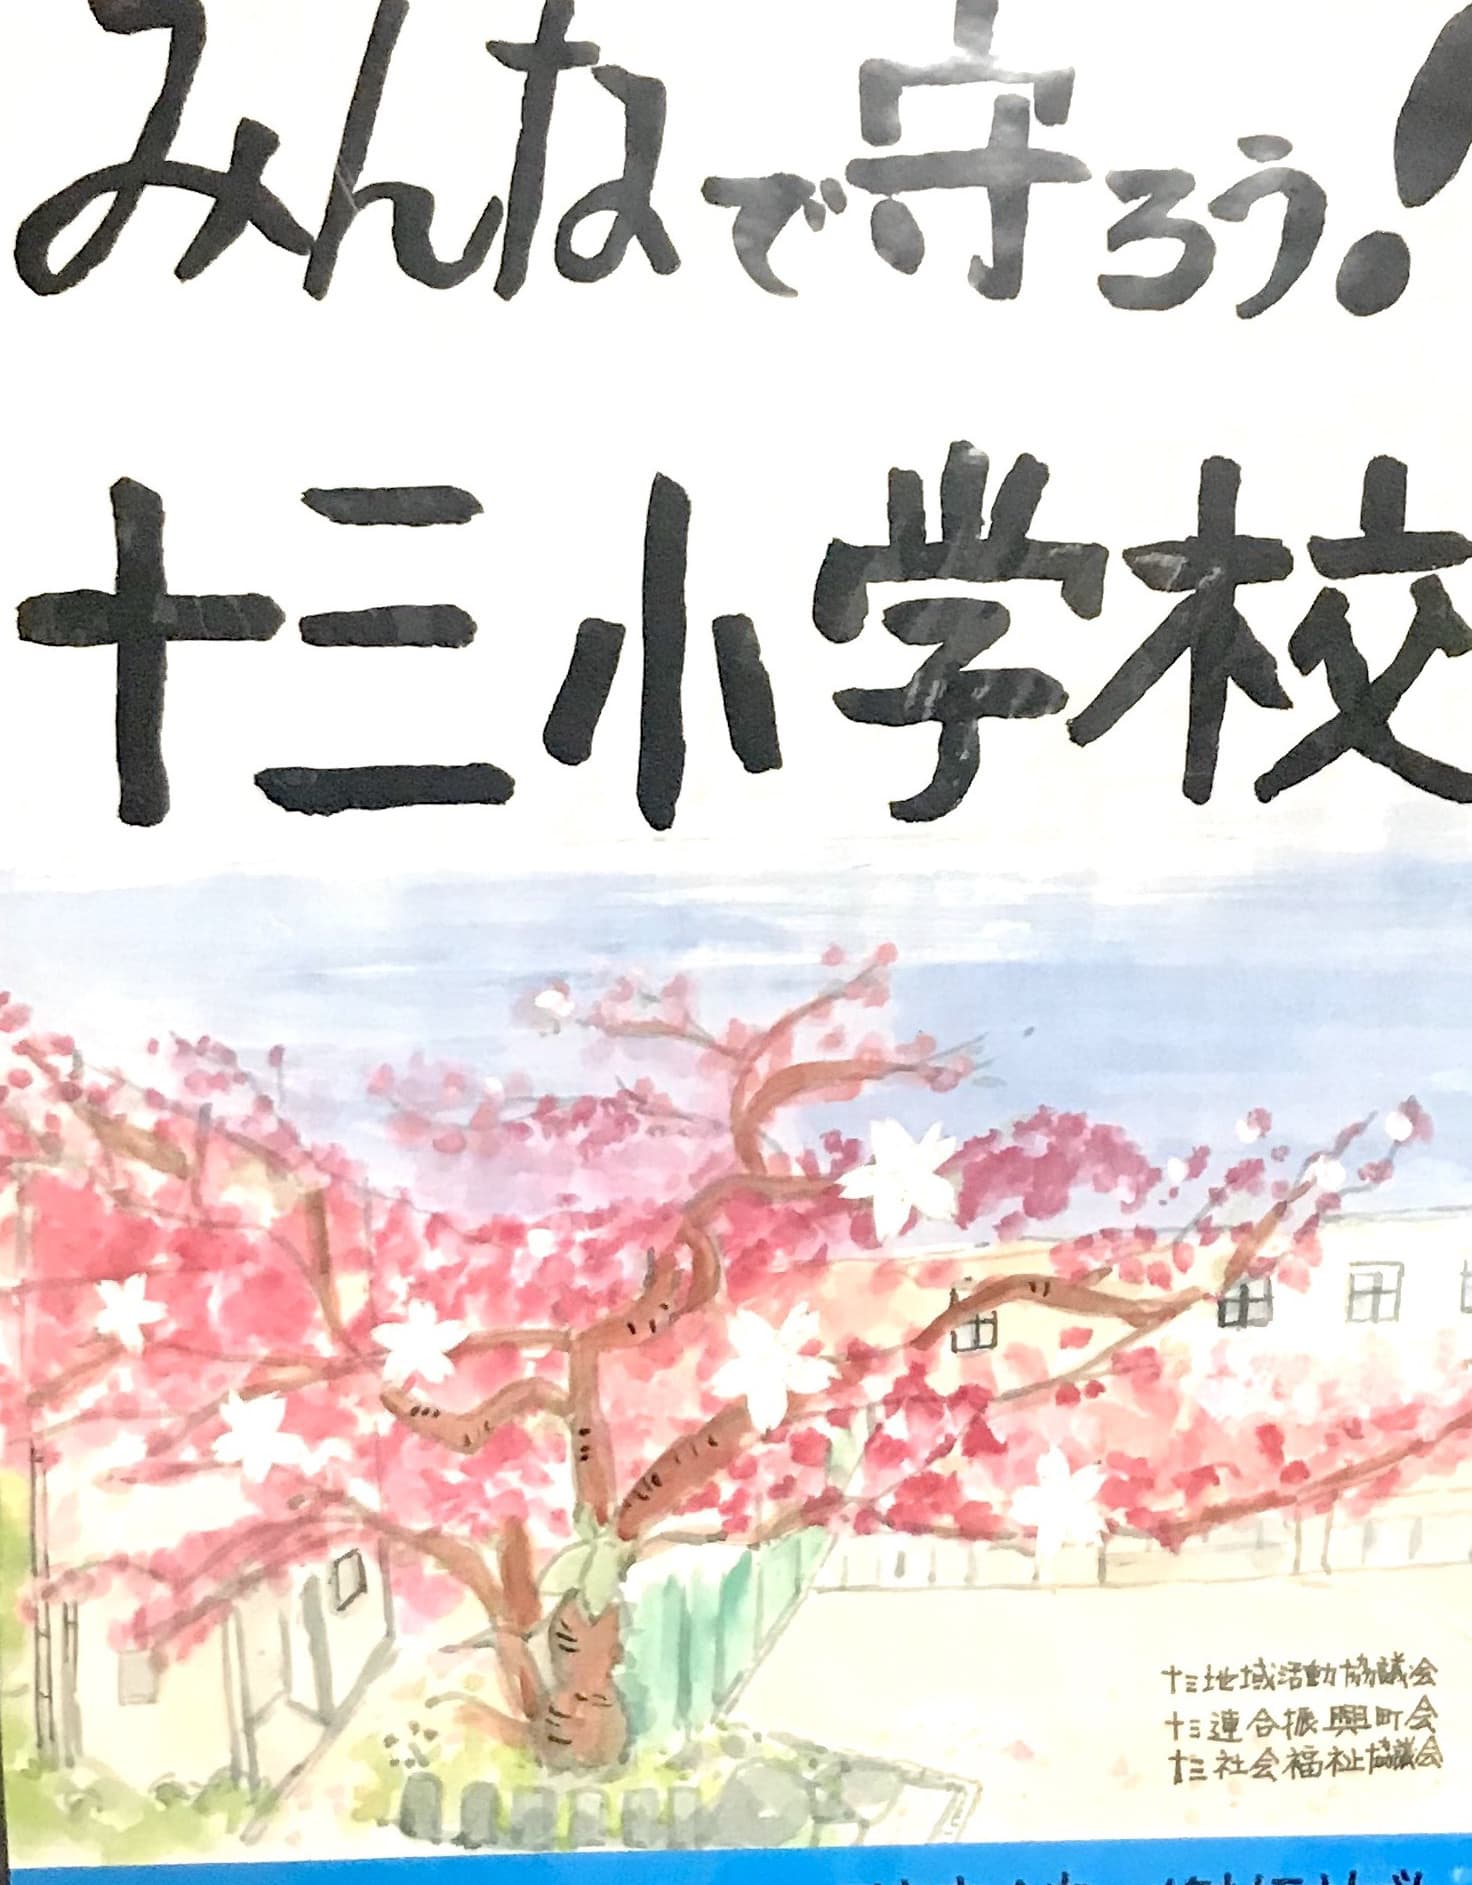 みんなで守ろう!
十三小学校
十三地域活動協議会
十三連合振興町会
十三社会福祉協議会